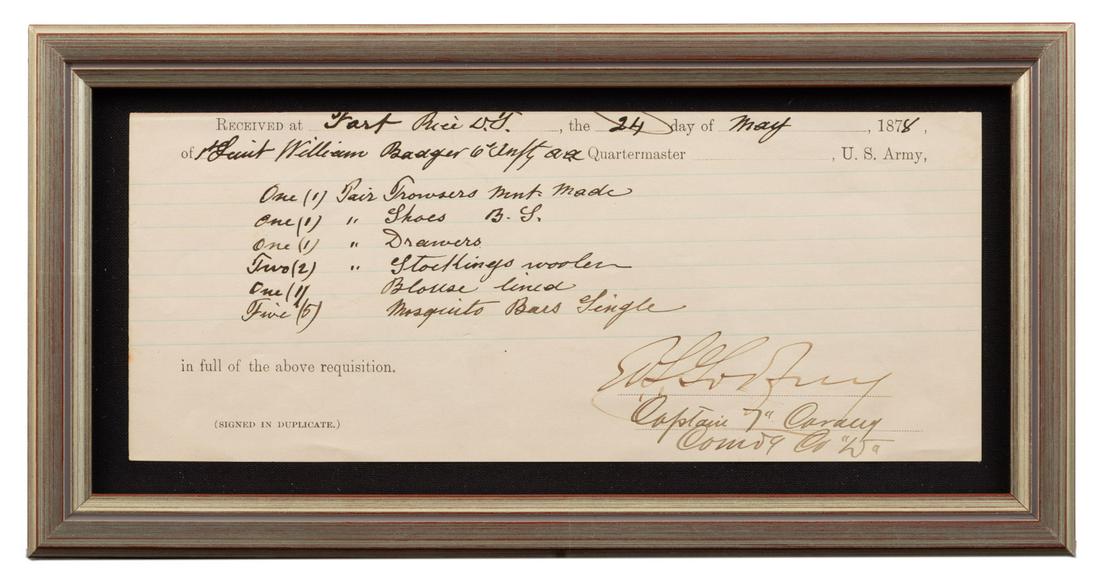 RECEIVED at Fort Rice D.T. , the 24 day of May , 1878 ,
of 1st Lieut William Badger 6" Infty a a Quartermaster , U. S. Army,
One (1) Pair Trowsers Mnt. Made
One (1) " Shoes B. S.
One (1) " Drawers
Two (2) " Stockings woolen
One (1) Blouse lined
Five (5) Mosquito Bars Single
in full of the above requisition.
E S Godfrey
Captain "7" Cavalry
(SIGNED IN DUPLICATE.)
Comdg Co "D"